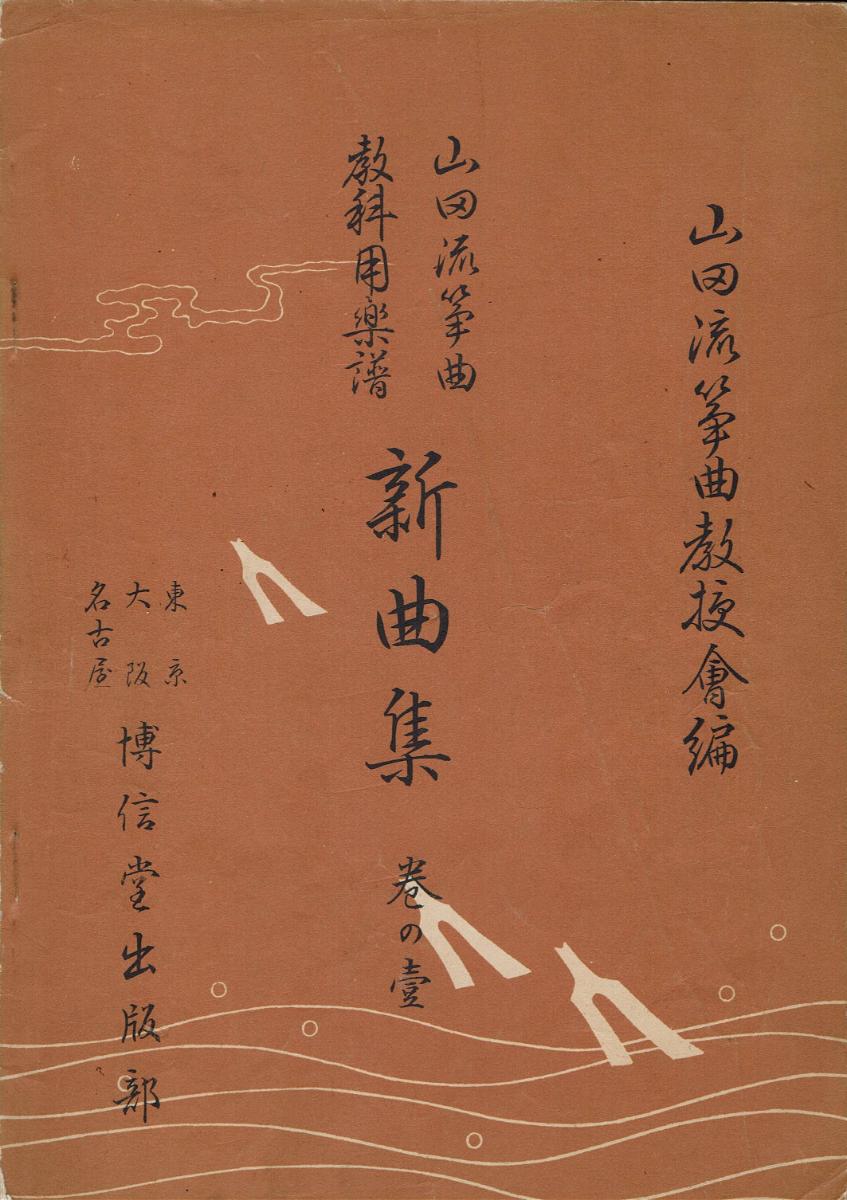 山田流箏曲教授會編
山田流箏曲
教科用楽譜
新曲集
巻の壹
東京
大阪
名古屋
博信堂出版部